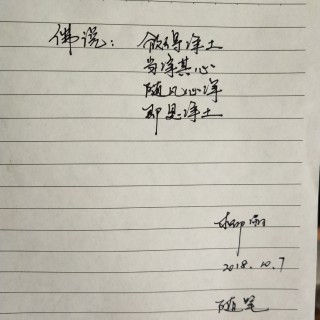 佛说：欲得净土
当净其心
随风心净
即是净土
柳
2018.10.7
随笔